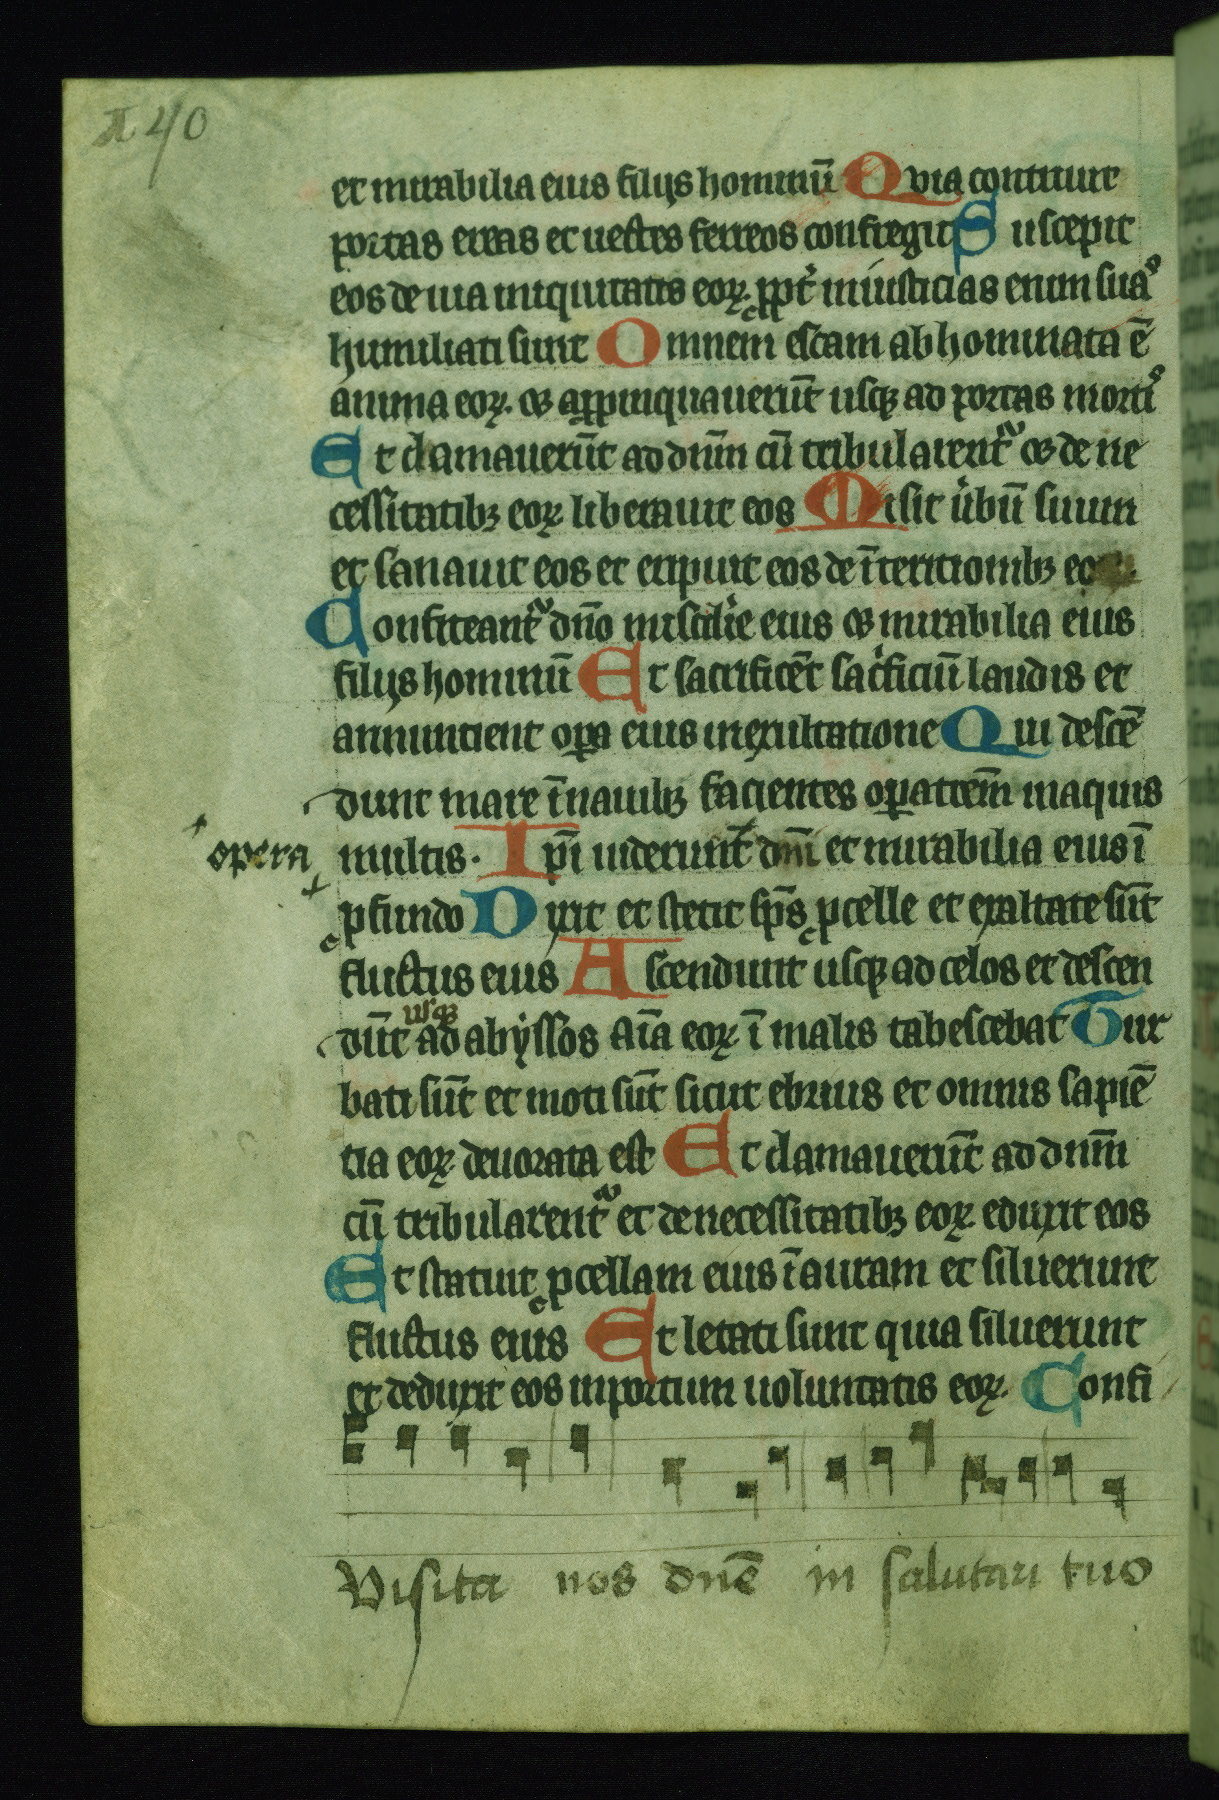 A 40
et mirabilia eius filijs hominū Quia contriuit
portas ereas et uectes ferreos confregit Suscepit
eos de uia iniquitatis eoꝝ. ꝓpt̓ iniusticias enim sua⁹
humiliati sunt Omnem escam abhominata ē
anima eoꝝ. ⁊ appinquauerūt usqꝫ ad portas morti⁹
Et clamauerūt ad dn̄m cū tribularent᷑ ⁊ de ne
cessitatibꝫ eoꝝ liberauit eos Misit u̓bū suum
et sanauit eos et eripuit eos de īteritionibꝫ eo
Confiteant᷑ dn̄o miscd̓ie eius ⁊ mirabilia eius
filijs hominū Et sacrificēt sac̓ficiū laudis et
annuncient oꝑa eius in exultatione Qui descē
dunt mare ī nauibꝫ facientes oꝑatem̄ in aquis
opera multis. Ip̄i uiderunt dn̄i et mirabilia eius ī
ꝓfundo Dixit et stetit sp̄s ꝓcelle et exaltate sūt
fluctus eius Ascendunt usqꝫ ad celos et descen
usqꝫ
dūt ad abyssos aīa eoꝝ ī malis tabescebat Tur
bati sūt et moti sūt sicut ebrius et omnis sapiē
tia eoꝝ deuorata est Et clamauerūt ad dnm̄
cū tribularent᷑ et de necessitatibꝫ eoꝝ eduxit eos
Et statuit ꝓcellam eius ī auram et siluerunt
fluctus eius Et letati sunt quia siluerunt
et deduxit eos in portum uoluntatis eoꝝ. Confi
Visita nos dn̄e in salutari tuo